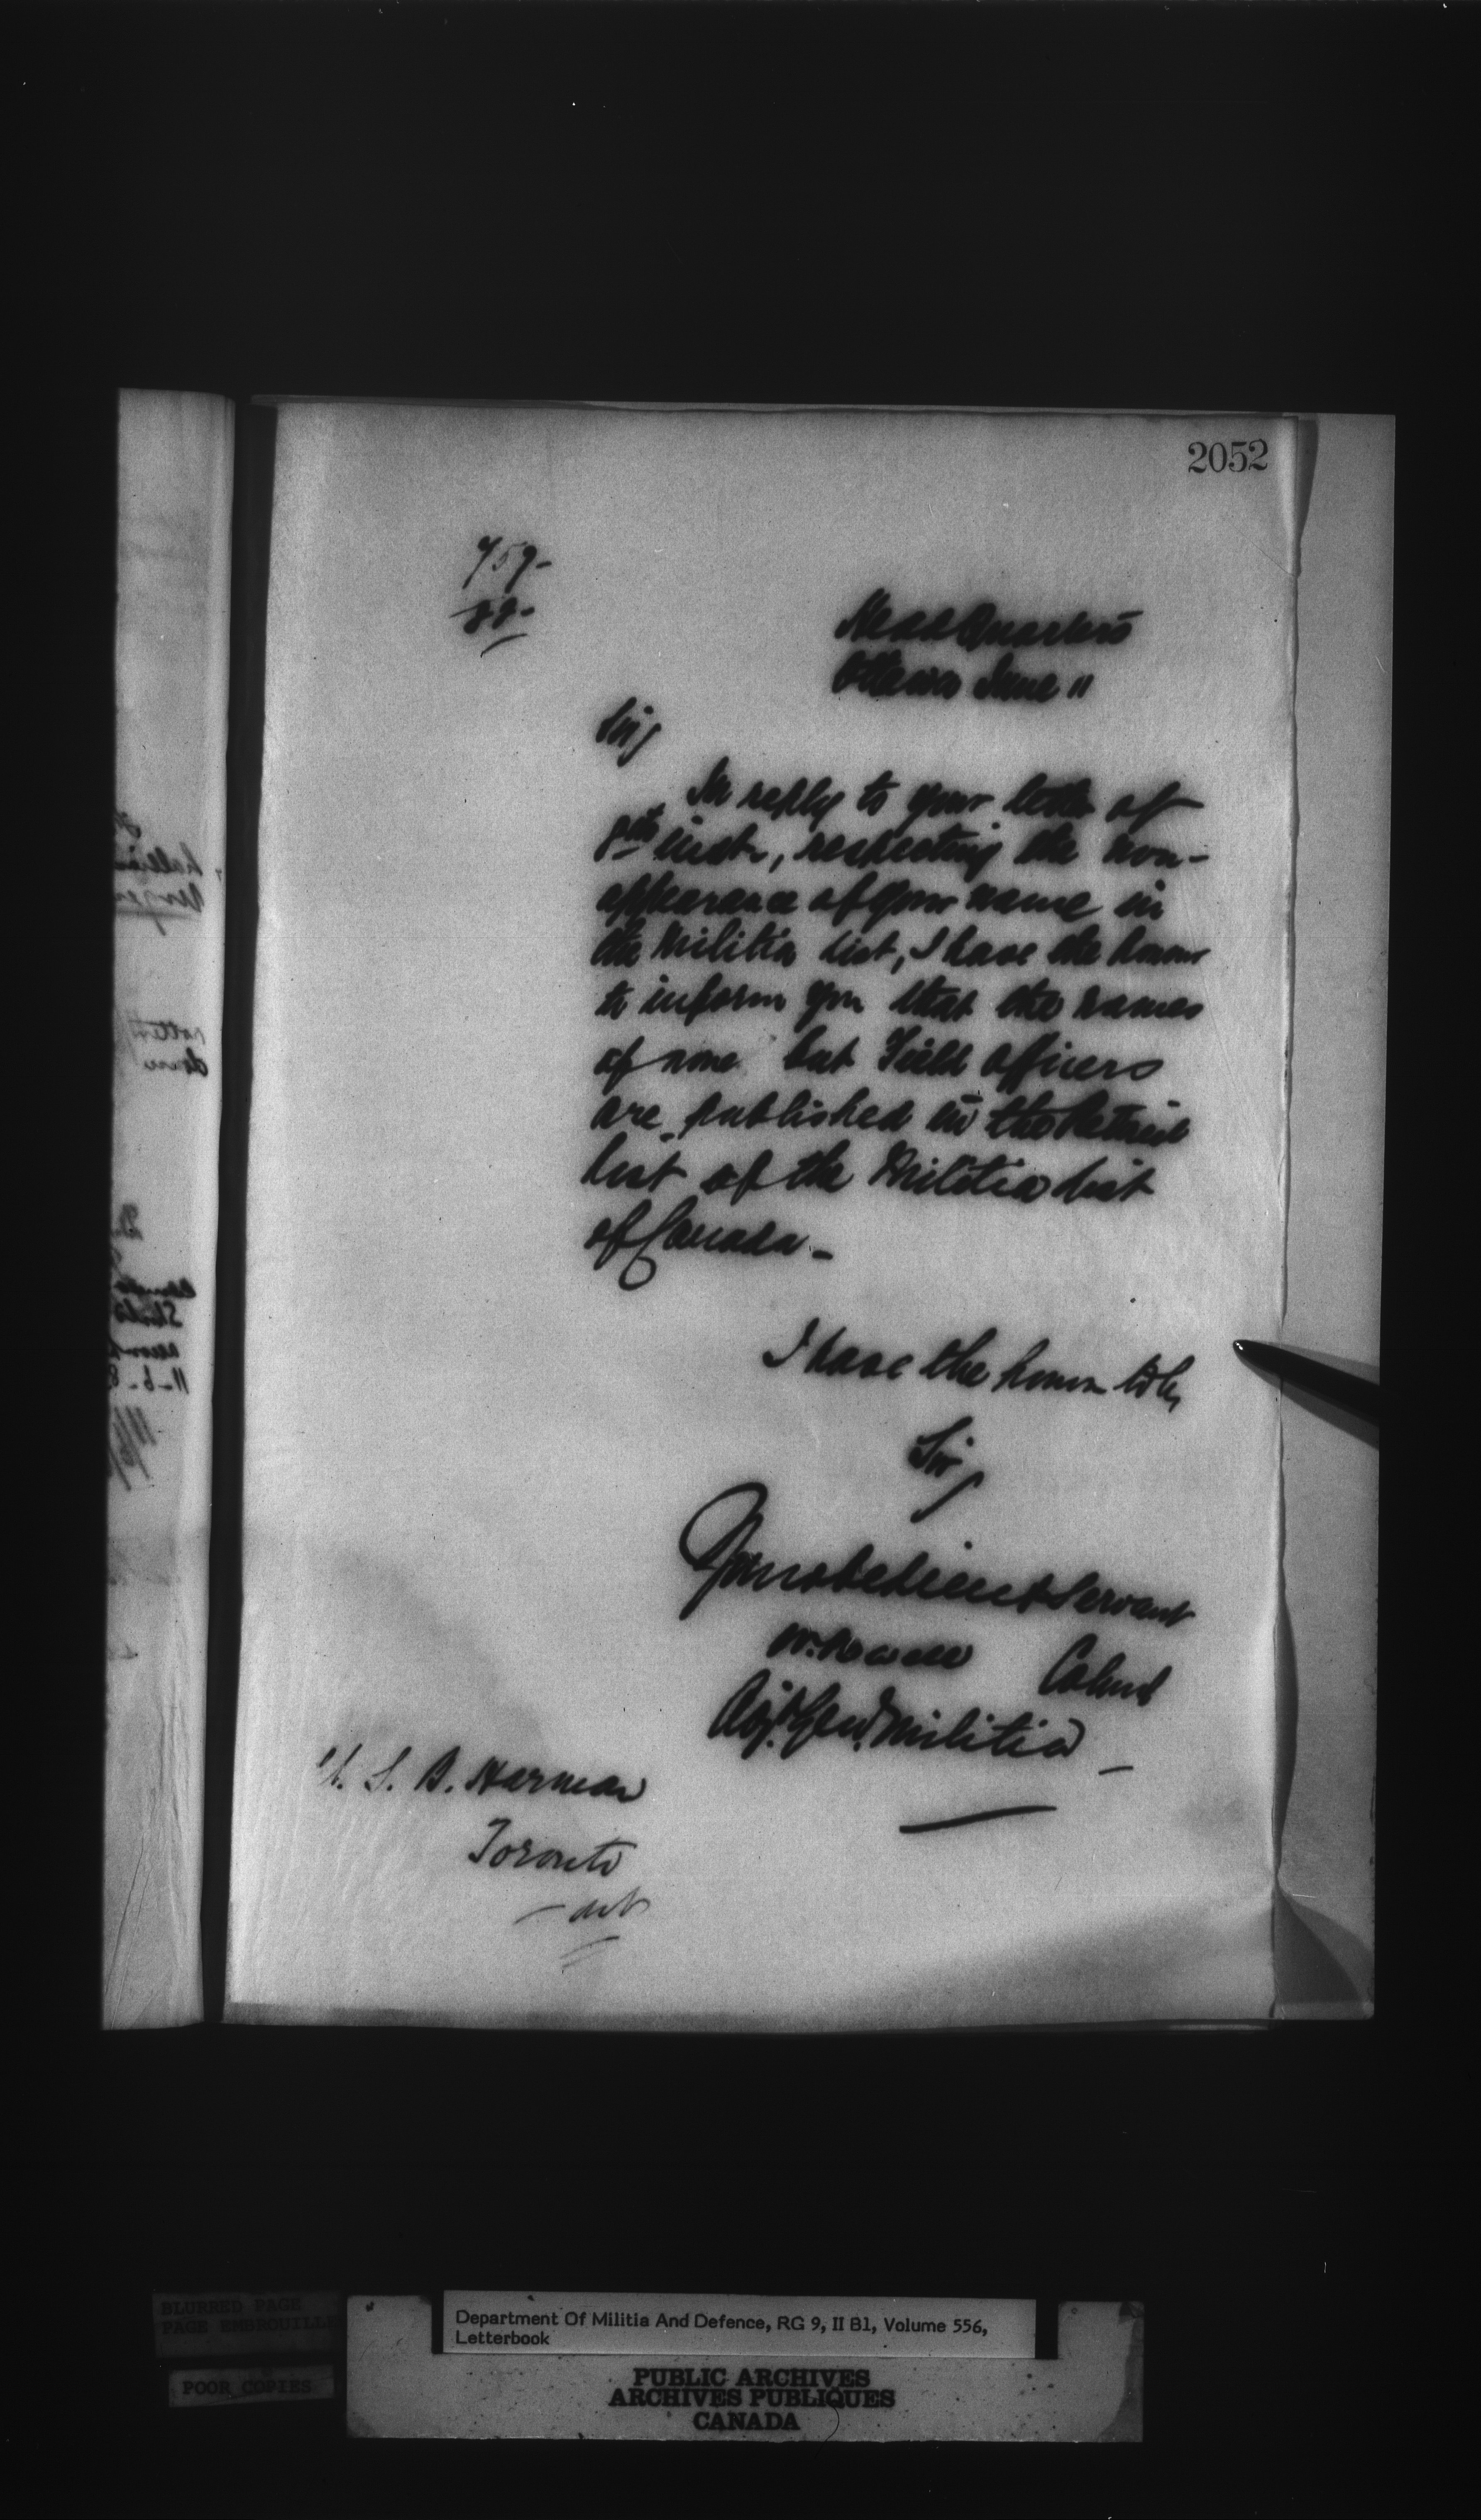 2052
759-
Head Quarters
Ottawa June 11
Sir,
In reply to your letter of
8th inst, respecting the non-
appearance of your name in
the Militia list, I have the honor
to inform you that the names
of none but Field Officers
are published in the Retired
list of the Militia list
of Canada -
I have the honor to be,
Sir,
Your obedient Servant
W. Powell Colonel
Adjt. Genl. Militia
S. B. Harman
Toronto
Ont
BLURRED PAGE
PAGE EMBROUILLÉE
POOR COPIES
Department Of Militia And Defence, RG 9, II B1, Volume 556,
Letterbook
PUBLIC ARCHIVES
ARCHIVES PUBLIQUES
CANADA